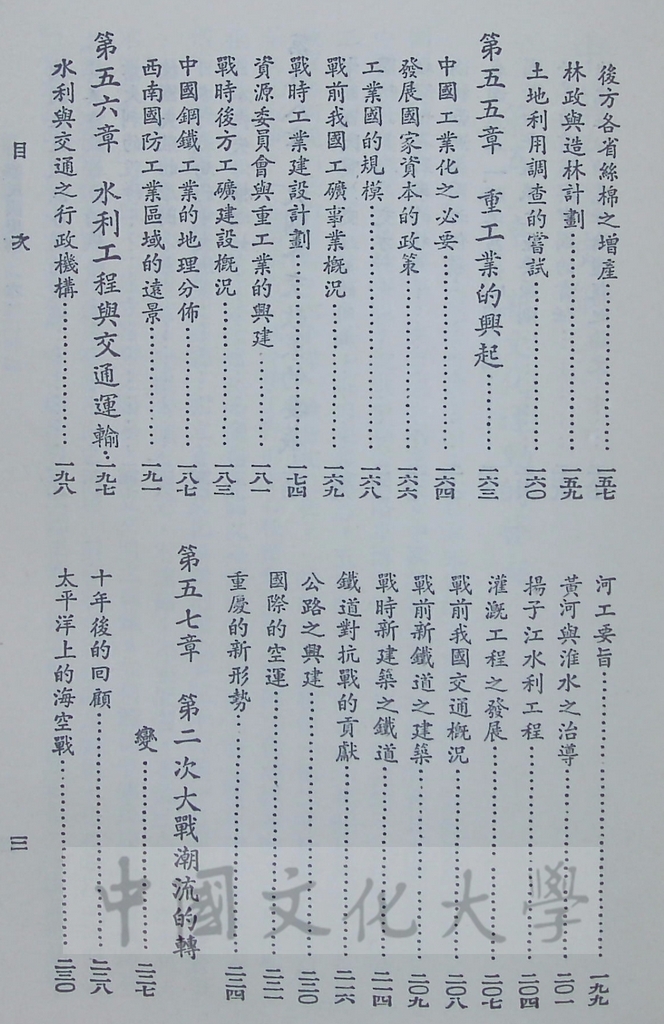 後方各省絲棉之增產……一五七
林政與造林計劃……一五九
土地利用調查的嘗試……一六〇
第五五章 重工業的興起……一六三
中國工業化之必要……一六四
發展國家資本的政策……一六六
工業國的規模……一六八
戰前我國工礦事業概況……一六九
戰時工業建設計劃……一七四
資源委員會與重工業的興建……一八一
戰時後方工礦建設概況……一八三
中國鋼鐵工業的地理分佈……一八七
西南國防工業區域的遠景……一九一
第五六章 水利工程與交通運輸……一九七
水利與交通之行政機構……一九八
河工要旨……一九九
黃河與淮水之治導……二〇一
揚子江水利工程……二〇四
灌溉工程之發展……二〇七
戰前我國交通概況……二〇八
戰前新鐵道之建築……二〇九
戰時新建築之鐵道……二一四
鐵道對抗戰的貢獻……二一六
公路之興建……二二〇
國際的空運……二二一
重慶的新形勢……二二四
第五七章 第二次大戰潮流的轉
變……二二七
十年後的回顧……二二八
太平洋上的海空戰……二三〇
目次
三
中國文化大學